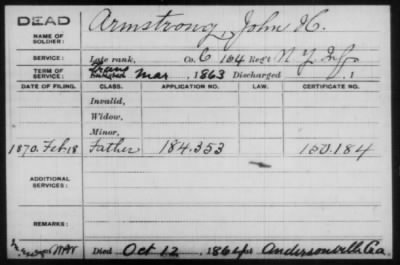 DEAD
NAME OF SOLDIER: Armstrong, John H.
SERVICE: Late rank, Co. C 164 Reg't N Y Inf
TERM OF SERVICE: Trans Enlisted Mar , 1863 Discharged , 1
DATE OF FILING. CLASS. APPLICATION NO. LAW. CERTIFICATE NO.
Invalid,
Widow,
Minor,
1870. Feb 18 Father 184.353 150.184
ADDITIONAL SERVICES:
REMARKS:
Died Oct 12, 1864, at Andersonville Ga